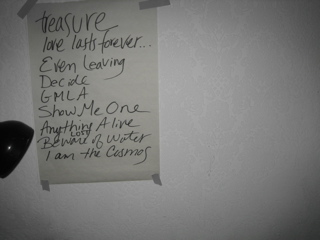 treasure
love lasts forever...
Even Leaving
Decide
GMLA
Show Me One
Anything Alive
Beware of Water
I am the Cosmos